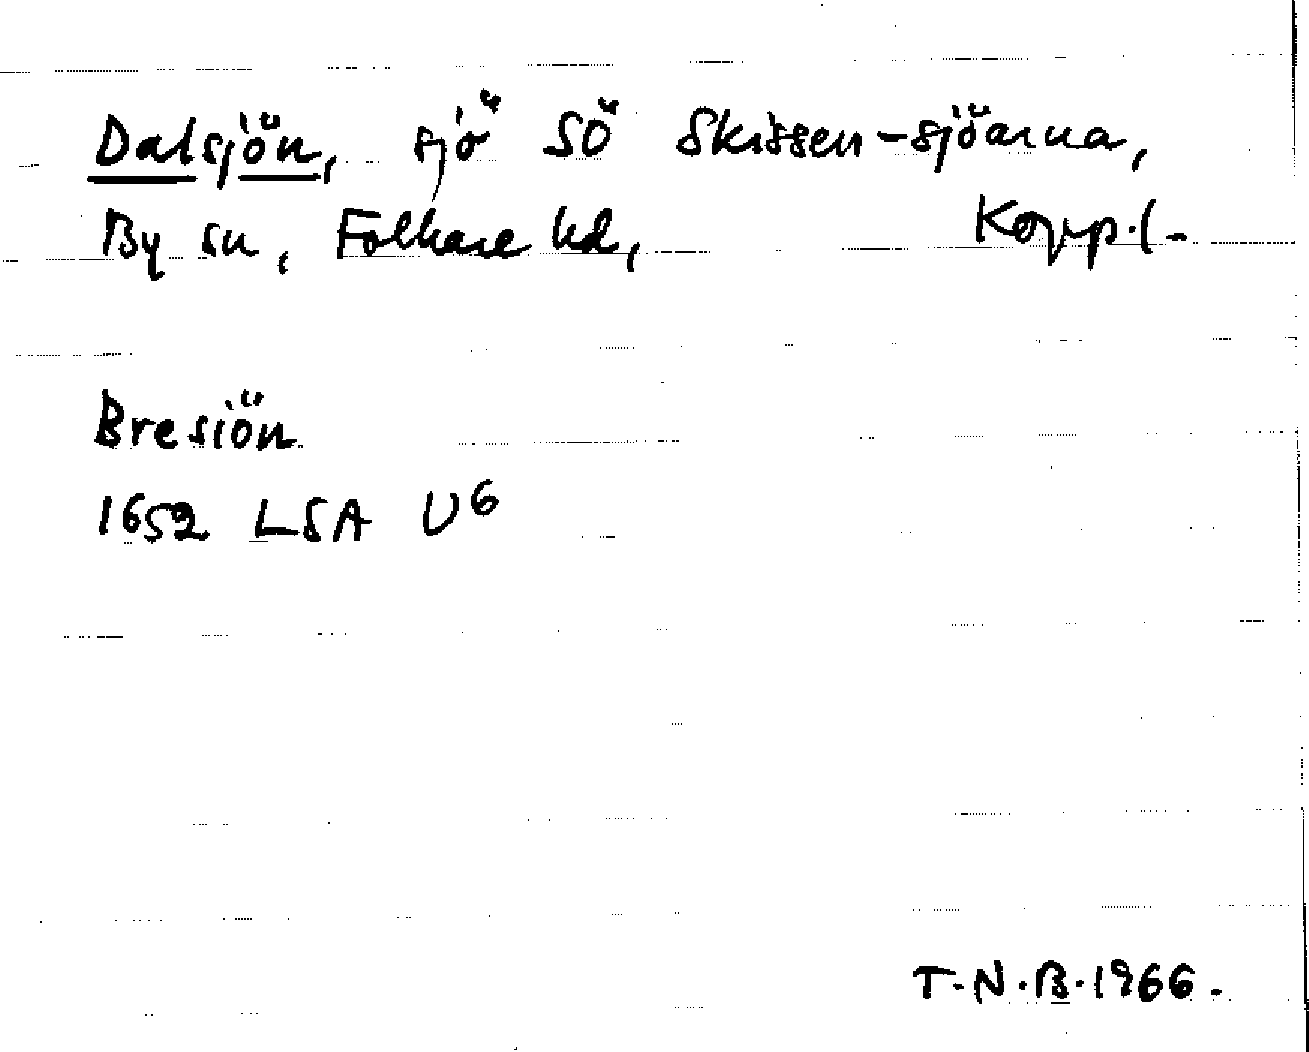 Dalsjön, sjö SÖ Skissen-sjöarna,
By sn, Folkare hd, Kopp.l-
Bresiön
1652 LSA U6
T.N.B.1966.